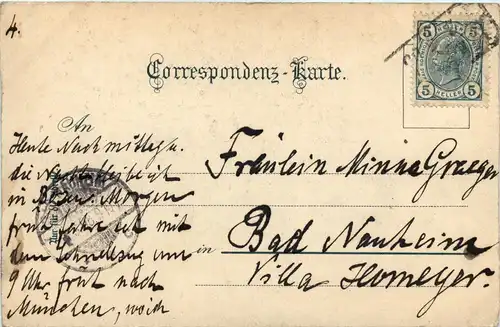 4.
5 5
5 HELLER 5
Correspondenz-Karte.
An
Heute Nachmittag u.
die Nacht bleibe ich
in Morgen
früh fahre ich mit
dem Schnellzug um
9 Uhr früh nach
München, wo ich
Fräulein Minna Graeger
in Bad Nauheim
Villa Homeyer.